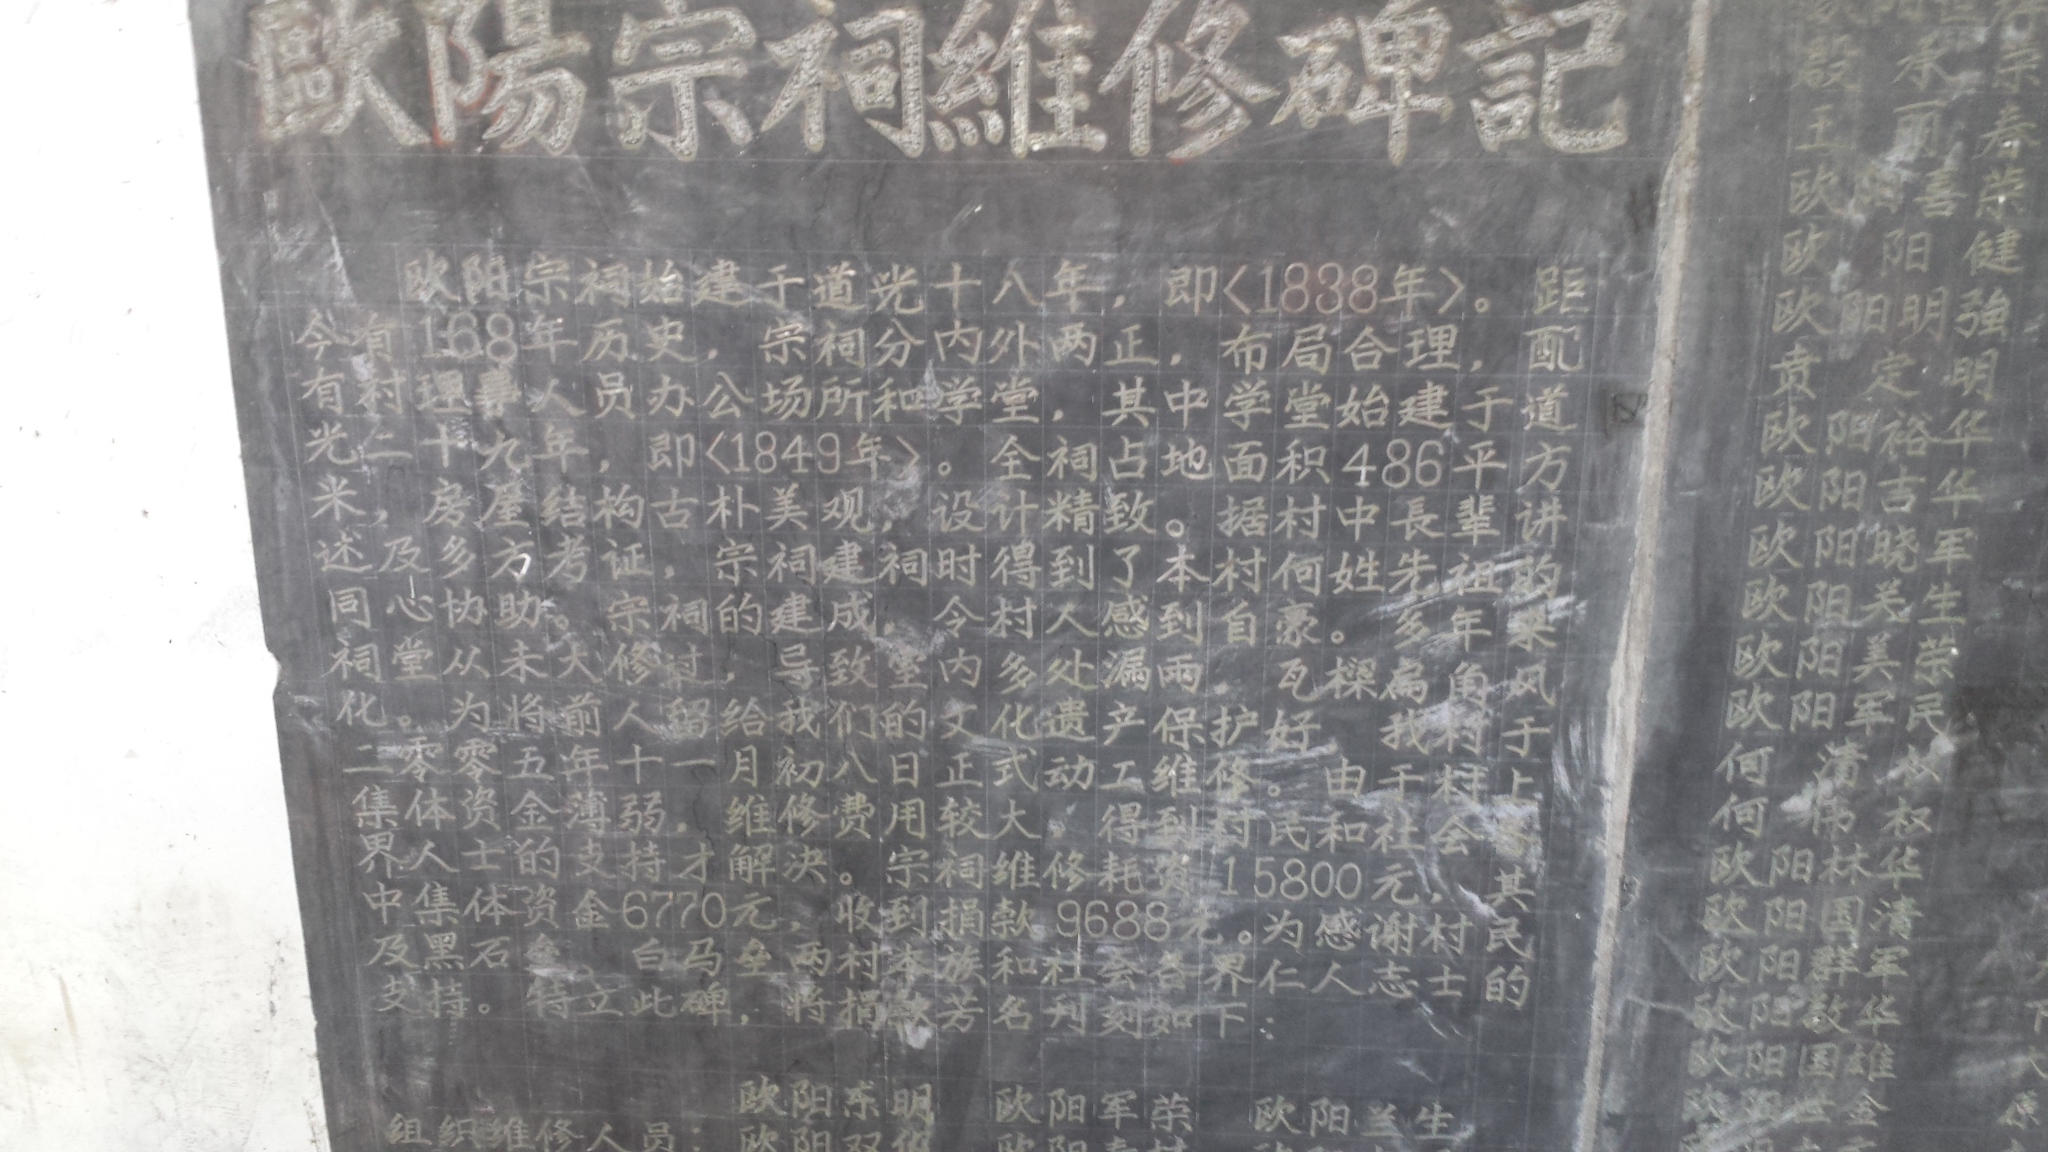 歐陽宗祠維修碑記
欧阳宗祠始建于道光十八年，即<1838年>。距
今有168年历史，宗祠分内外两正，布局合理，配
有村理事人员办公场所和学堂，其中学堂始建于道
光二十九年，即<1849年>。全祠占地面积486平方
米，房屋结构古朴美观，设计精致。据村中長辈讲
述，及多方考证，宗祠建祠时得到了本村何姓先祖的
同心协助。宗祠的建成，令村人感到自豪。多年来
祠堂从未大修过，导致堂内多处漏雨 瓦樑扁角风
化。为将前人留给我们的文化遗产保护好 我村于
二零零五年十一月初八日正式动工维修。由于村上
集体资金薄弱，维修费用较大 得到村民和社会
界人士的支持才解决。宗祠维修耗资15800元，其
中集体资金6770元，收到捐款9688元。为感谢村民
及黑石 白马垒两村本族和社会各界仁人志士的
支持。特立此碑，将捐款芳名刊刻如下：
欧阳东明 欧阳军荣 欧阳兰生
组织维修人员：欧阳双
欧阳
欧阳明強
贲定明
欧阳裕华
欧阳吉华
欧阳晓军
欧阳 生
欧阳美荣
欧阳军民
何清
何伟权
欧阳林华
欧阳国清
欧阳群军
欧阳敬华
欧阳国雄